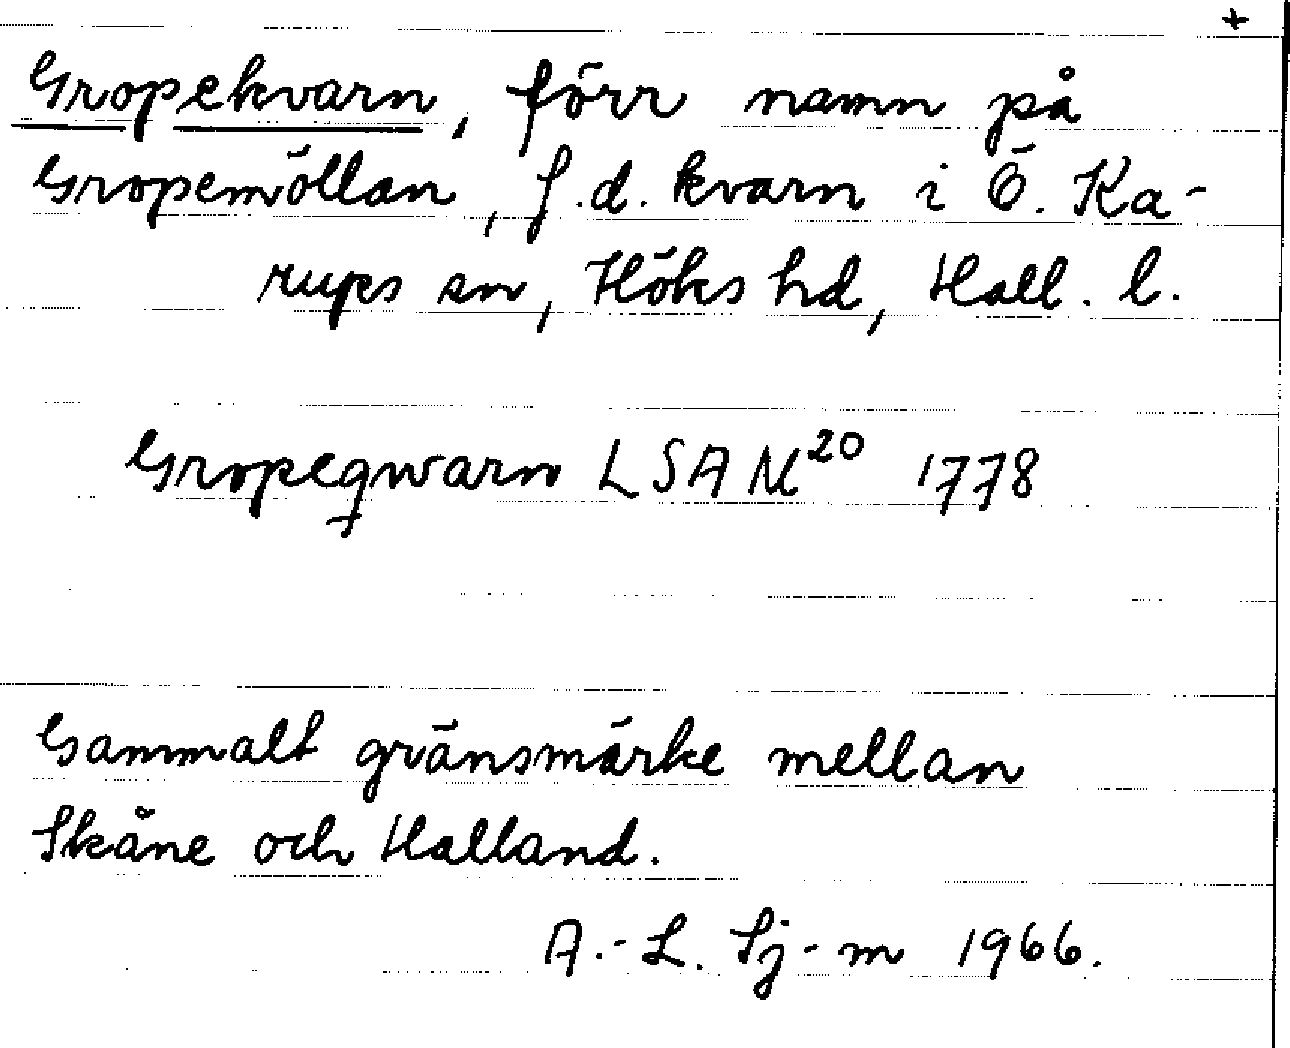 +
Gropekvarn, förr namn på
Gropemöllan, f.d. kvarn i Ö. Ka-
rups sn, Höks hd, Hall. l.
Gropeqwarn LSA M²⁰ 1778
Gammalt gränsmärke mellan
Skåne och Halland.
A.-L. Sj-m 1966.